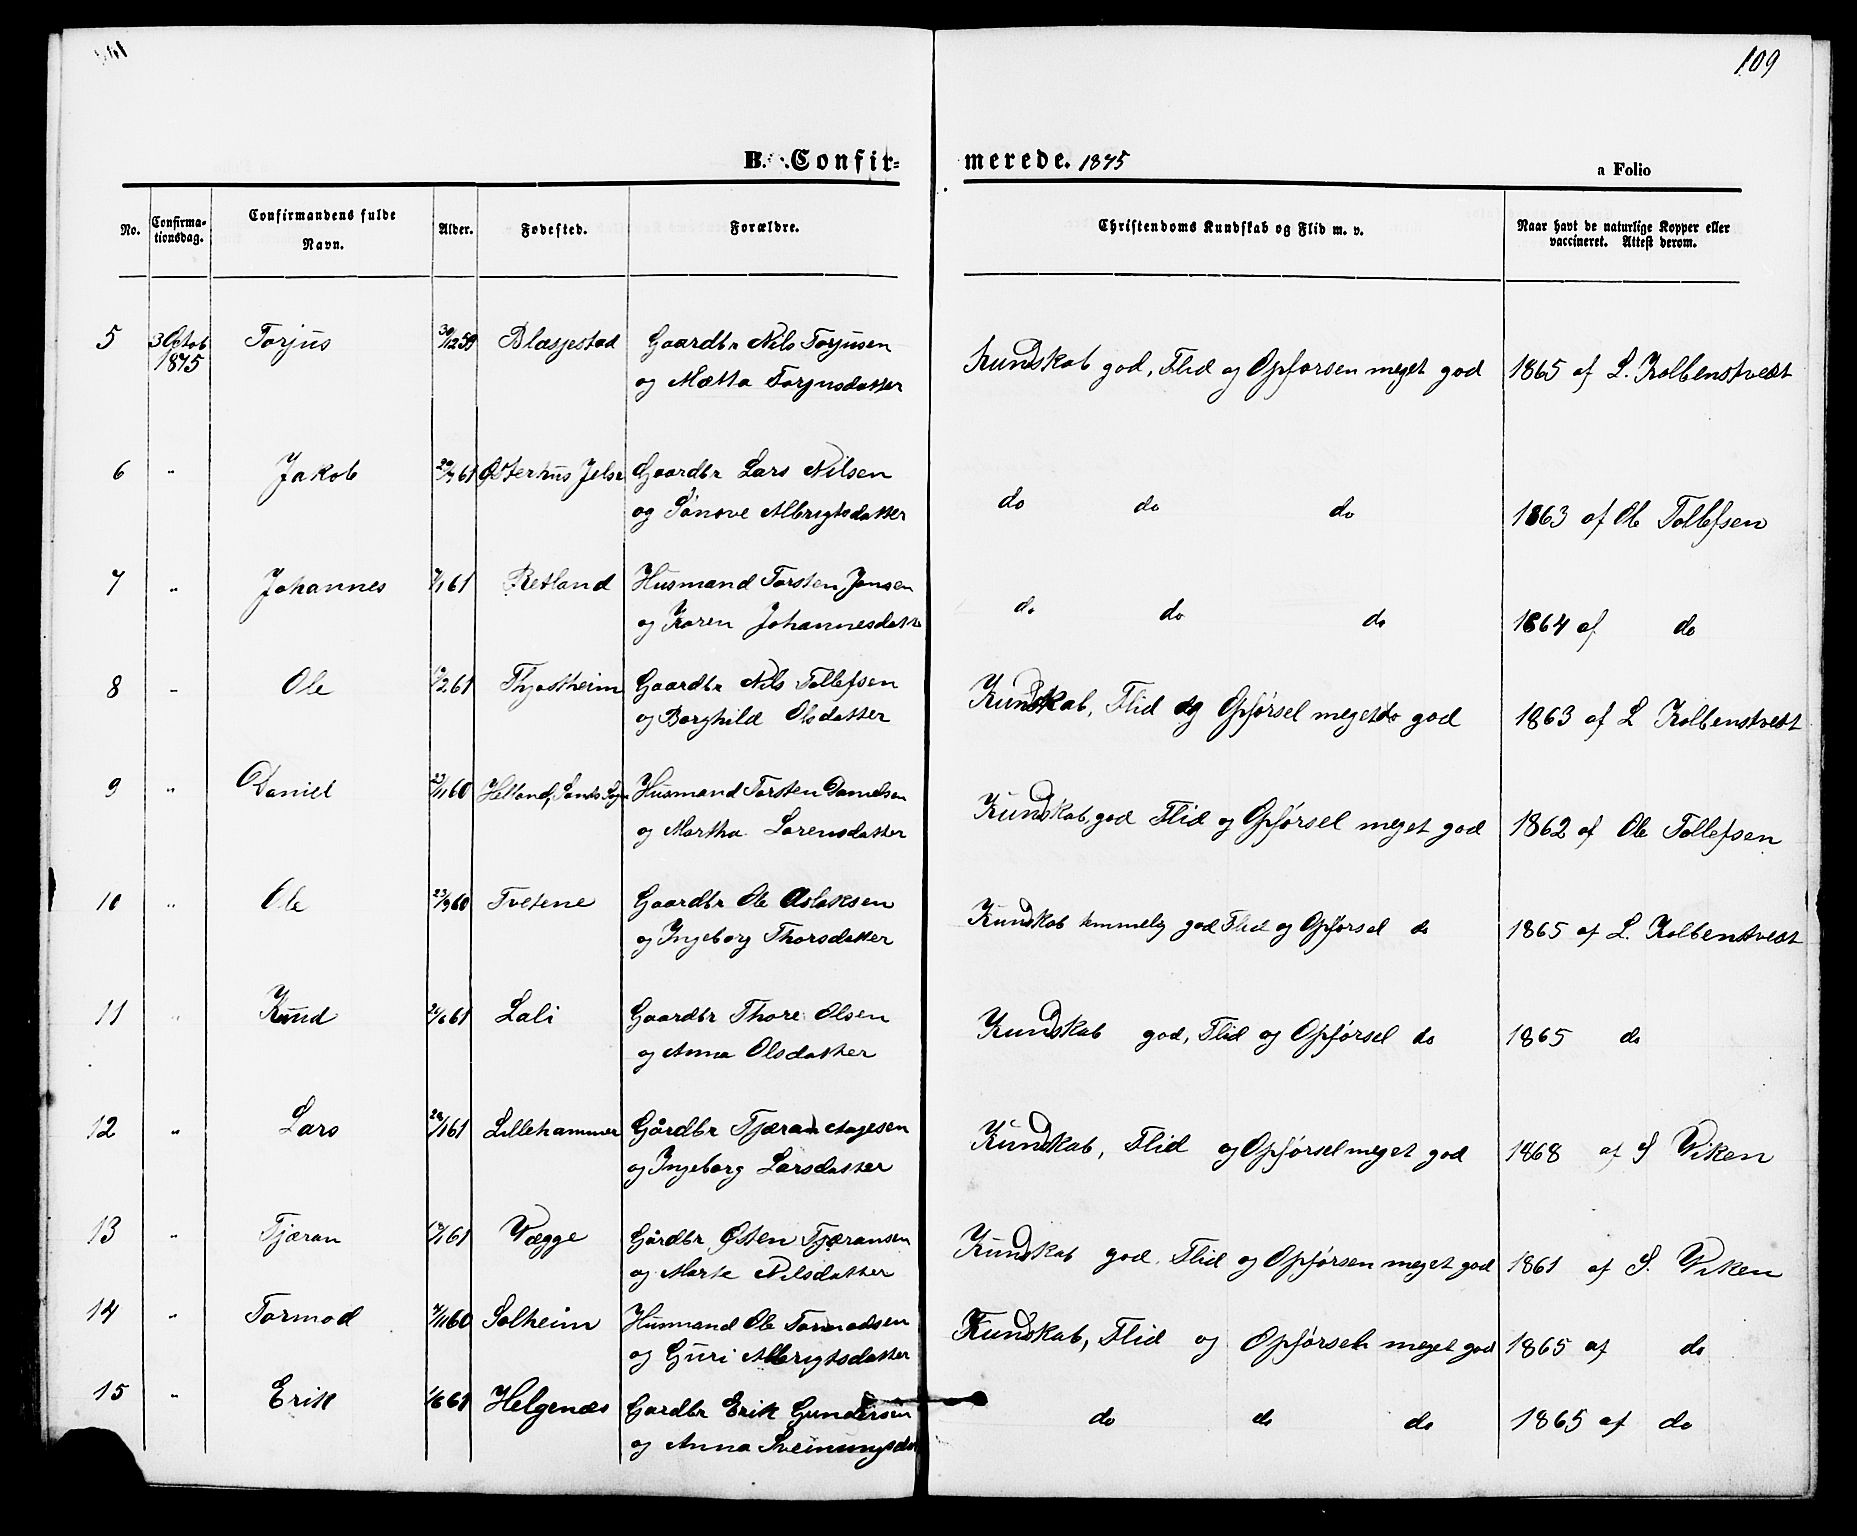 109
B. Confirmerede. 1875
a Folio
No. Confirmationsdag. Confirmandens fulde Navn. Alder. Fødested. Forældre. Christendoms Kundskab og Flid m. v. Naar havt de naturlige Kopper eller vaccineret. Attest derom.
5 3 Octob 1875 Torjus 30/12 59 Blæsjestad Gaardbr Nils Torjusen
og Mætta Torjusdatter Kundskab god, Flid og Opførsen meget god 1865 af L. Kolbenstvedt
6 " Jakob /7 61 Østerhus Jelse Gaardbr Lars Nilsen
og Sønove Albrigtsdatter do do do 1863 af Ole Tollefsen
7 " Johannes /1 61 Retland Husmand Torsten Jonsen
og Karen Johannesdatt do do do 1864 af do
8 " Ole /2 61 Thjostheim Gaardbr Nils Tollefsen
og Borghild Olsdatter Kundskab, Flid og Opførsel meget god 1863 af L Kolbenstvedt
9 " Daniel 23/11 60 Helland, Sands Sogn Husmand Torsten Danielsen
og Martha Sørensdatter Kundskab, god Flid og Opførsel meget god 1862 af Ole Tollefsen
10 " Ole 23/9 60 Tvetene Gaardbr Ole Aslaksen
og Ingeborg Thorsdatter Kundskab temmelig god Flid og Opførsel do 1865 af L. Kolbenstvedt
11 " Knud /6 61 Lali Gaardbr Thore Olsen
og Anna Olsdatter Kundskab god, Flid og Opførsel do 1865 do
12 " Lars 28/1 61 Lillehammer Gårdbr Tjæran Aagesen
og Ingeborg Larsdatter Kundskab, Flid og Opførsel meget god 1868 af S Viken
13 " Tjæran /1 61 Vægge Gårdbr Østen Tjæransen
og Marte Nilsdatter Kundskab god, Flid og Opførsen meget god 1861 af S. Viken
14 " Tormod /11 60 Solheim Husmand Ole Tormodsen
og Guri Albrigtsdatter Kundskab, Flid og Opførsel meget god 1865 af do
15 " Erik 1/6 61 Helgenæs Gardbr Erik Gundersen
og Anna Sveinungsdat do do do 1865 af do